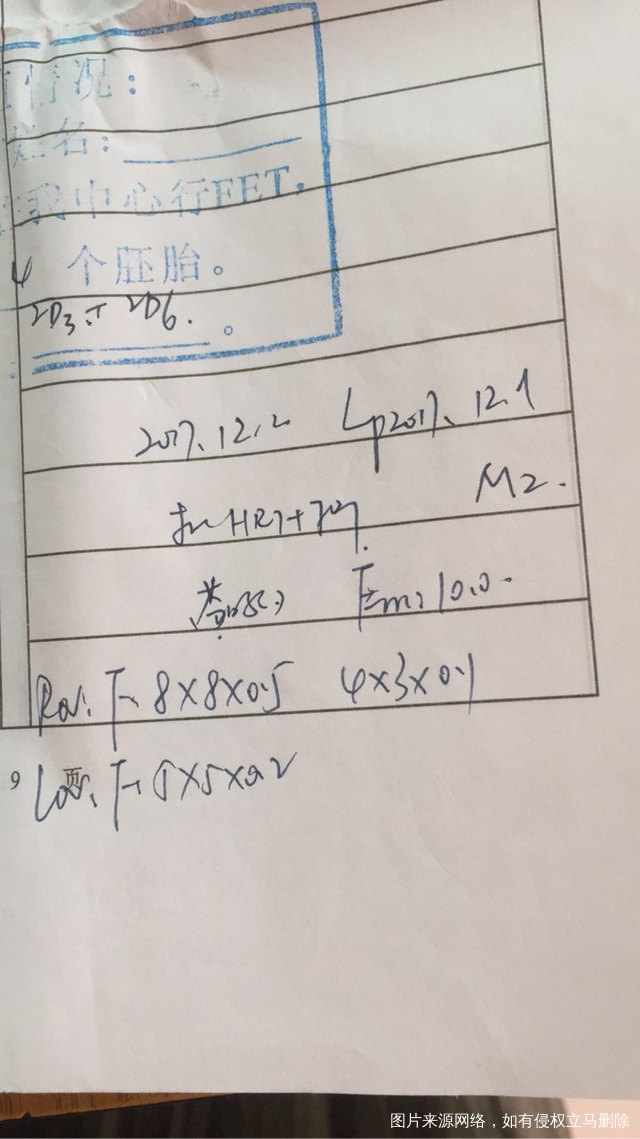 情况：
姓名：
我中心行FET，
4 个胚胎。
2D3 2D6. 。
2017.12.2 Lp2017.12.1
M2.
HRT+
Em: 10.0
Rov: F: 8×8×0.5 4×3×0.1
9 页
Lov: F: 5×5×0.2
图片来源网络，如有侵权立马删除